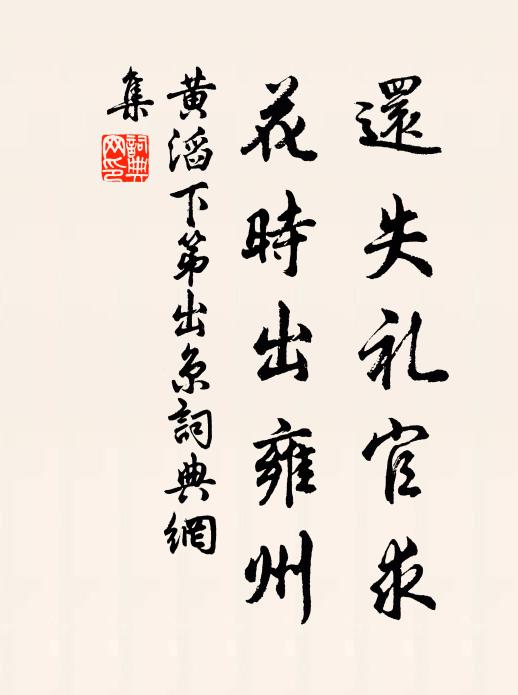 還失礼官求
花時出雍州
黃滔下第出京詞典網
集
詞典
网印